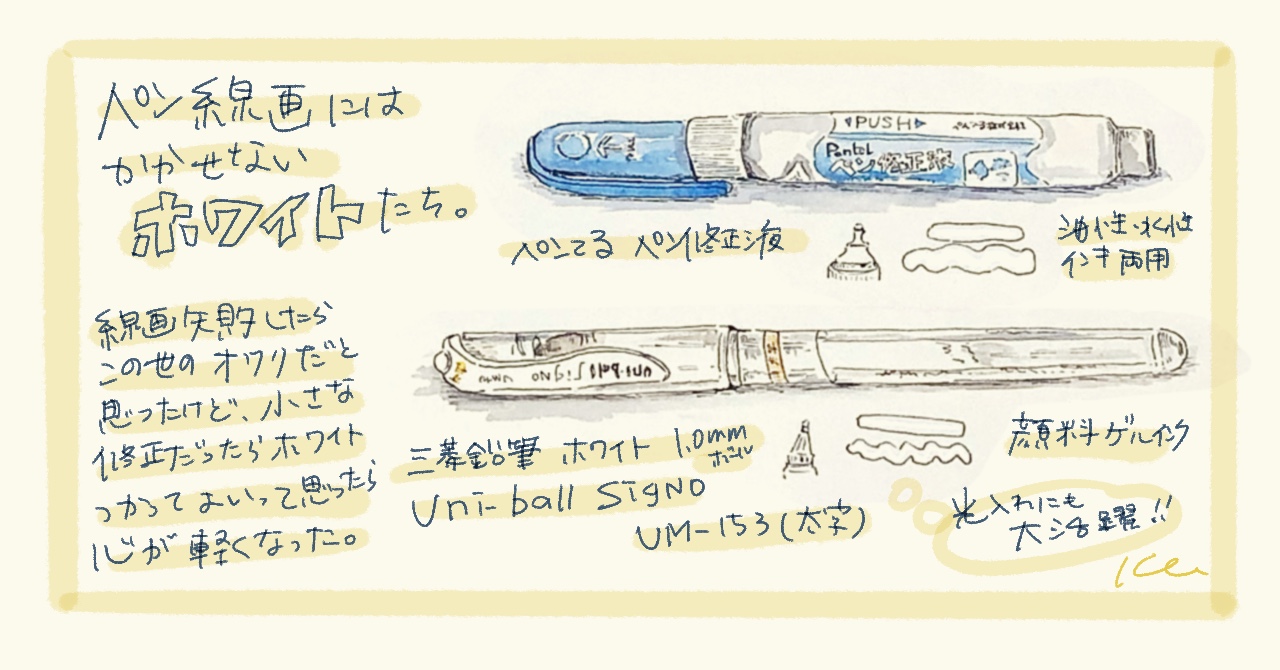 ペン線画には
かかせない
ホワイトたち。
線画失敗したら
この世のオワリだと
思ったけど、小さな
修正だったらホワイト
つかってよいって思ったら
心が軽くなった。
PUSH
Pentel
ペン修正液
ぺんてる ペン修正液
油性・水性
インキ両用
uni-ball Signo
三菱鉛筆 ホワイト 1.0mm
ボール
Uni-ball SigNO
UM-153(太字)
顔料ゲルインク
光入れにも
大活躍!!